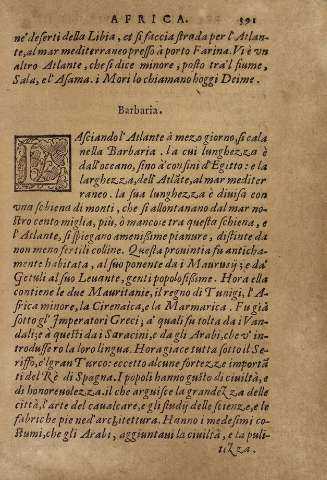 AFRICA. 391
ne' deserti della Libia, et si faccia strada per l'Atlan-
te, al mar mediterraneo presso à porto Farina. Vi è vn
altro Atlante, che si dice minore, posto tra'l fiume,
Sala, e l'Asama. i Mori lo chiamano hoggi Deime.
Barbaria.
LAsciando l'Atlante à mezo giorno, si cala
nella Barbaria. la cui lunghezza è
dall'oceano, sino à confini d'Egitto: e la
larghezza, dell'Atlāte, al mar mediter
raneo. la sua lunghezza è diuisa con
vna schiena di monti, che si allontanano dal mar no-
stro cento miglia, più, ò manco: e tra questa schiena, e
l'Atlante, si spiegano amenissime pianure, distinte da
non meno fertili colline. Questa prouintia fu anticha-
mente habitata, al suo ponente da i Maurusij; e da'
Getuli al suo Leuante, genti popolosissime. Hora ella
contiene le due Mauritanie, il regno di Tunigi, l'A-
frica minore, la Cirenaica, e la Marmarica. Fu già
sotto gl'Imperatori Greci; a' quali fu tolta da i Van-
dali; e à questi da i Saracini, e da gli Arabi, che v'in-
trodussero la loro lingua. Hora giace tutta sotto il Se-
riffo, e'l gran Turco: eccetto alcune fortezze importā
ti del Rè di Spagna. I popoli hanno gusto di ciuiltà, e
di honoreuolezza. il che arguisce la grandezza delle
città, l'arte del caualcare, e gli studij delle scienze, e le
fabriche piene d'architettura. Hanno i medesimi co-
stumi, che gli Arabi, aggiuntaui la ciuiltà, e la puli-
tezza.